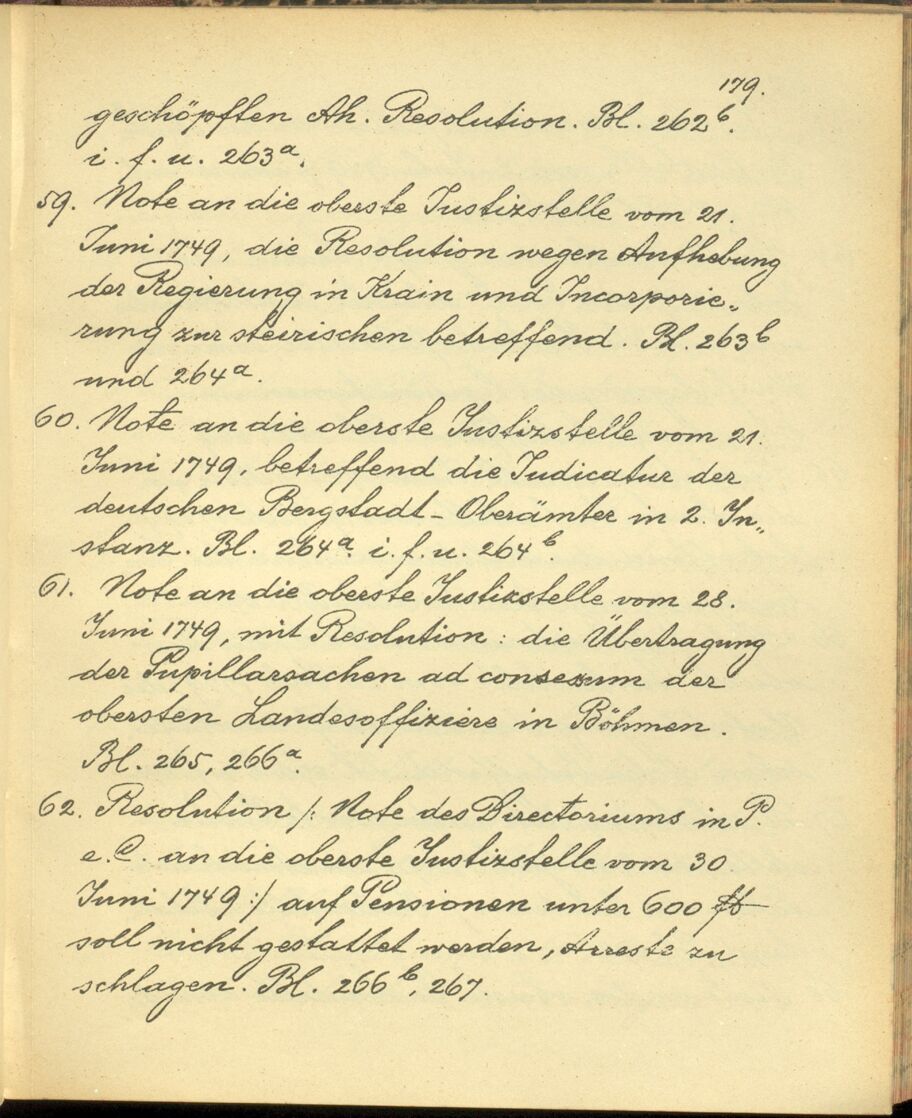 179.
geschöpften Ah. Resolution. Bl. 262b.
i. f. u. 263a.
59. Note an die oberste Justizstelle vom 21.
Juni 1749, die Resolution wegen Aufhebung
der Regierung in Krain und Incorporie„
rung zur steirischen betreffend. Bl. 263b
und 264a.
60. Note an die oberste Justizstelle vom 21.
Juni 1749, betreffend die Judicatur der
deutschen Bergstadt-Oberämter in 2. In„
stanz. Bl. 264a. i. f. u. 264b.
61. Note an die oberste Justizstelle vom 28.
Juni 1749, mit Resolution: die Übertragung
der Pupillarsachen ad consessum der
obersten Landesoffiziere in Böhmen.
Bl. 265, 266a
62. Resolution /: Note des Directoriums in P.
e. C. an die oberste Justizstelle vom 30
Juni 1749 :/ auf Pensionen unter 600 fl
soll nicht gestattet werden, Arreste zu
schlagen. Bl. 266b, 267.